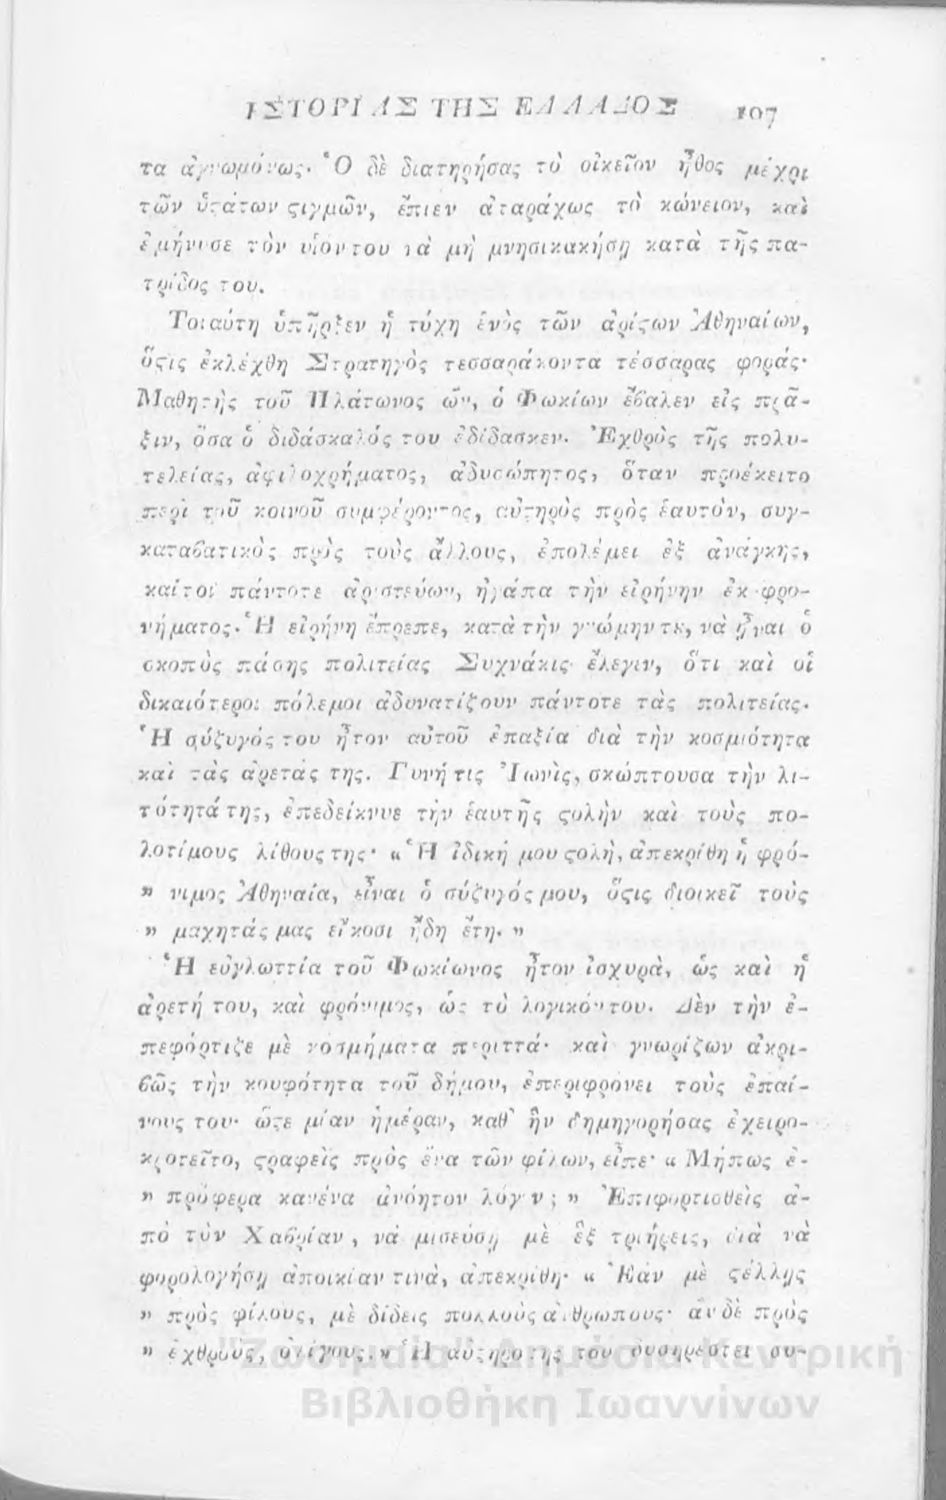 ΙΣΤΟΡΙΑΣ ΤΗΣ ΕΛΛΑΔΟΣ 107
τα ἀγνωμόνως. Ὁ δὲ διατηρήσας τὸ οἰκεῖον ἦθος μέχρι
τῶν ὑϛάτων ϛιγμῶν, ἔπιεν ἀταράχως τὸ κώνειον, καὶ
ἐμήνυσε τὸν υἱόν του νὰ μὴ μνησικακήσῃ κατὰ τῆς πα-
τρίδος του.
Τοιαύτη ὑπῆρξεν ἡ τύχη ἑνὸς τῶν ἀρίϛων Ἀθηναίων,
ὅϛις ἐκλέχθη Στρατηγὸς τεσσαράκοντα τέσσαρας φοράς·
Μαθητὴς τοῦ Πλάτωνος ὤν, ὁ Φωκίων ἔβαλεν εἰς πρᾶ-
ξιν, ὅσα ὁ διδάσκαλός του ἐδίδασκεν. Ἐχθρὸς τῆς πολυ-
τελείας, ἀφιλοχρήματος, ἀδυσώπητος, ὅταν προέκειτο
περὶ τοῦ κοινοῦ συμφέροντος, αὐϛηρὸς πρὸς ἑαυτὸν, συγ-
καταβατικὸς πρὸς τοὺς ἄλλους, ἐπολέμει ἐξ ἀνάγκης,
καίτοι πάντοτε ἀριστεύων, ἠγάπα τὴν εἰρήνην ἐκ φρο-
νήματος. Ἡ εἰρήνη ἔπρεπε, κατὰ τὴν γνώμην τȣ, νὰ ᾖναι ὁ
σκοπὸς πάσης πολιτείας Συχνάκις ἔλεγεν, ὅτι καὶ οἱ
δικαιότεροι πόλεμοι ἀδυνατίζουν πάντοτε τὰς πολιτείας.
Ἡ σύζυγός του ἦτον αὐτοῦ ἐπαξία διὰ τὴν κοσμιότητα
καὶ τὰς ἀρετάς της. Γυνή τις Ἰωνὶς, σκώπτουσα τὴν λι-
τότητά της, ἐπεδείκνυε τὴν ἑαυτῆς ϛολὴν καὶ τοὺς πο-
λοτίμους λίθους της· « Ἡ ἰδική μου ϛολὴ, ἀπεκρίθη ἡ φρό-
» νιμος Ἀθηναία, εἶναι ὁ σύζυγός μου, ὅϛις διοικεῖ τοὺς
» μαχητάς μας εἴκοσι ἤδη ἔτη. »
Ἡ εὐγλωττία τοῦ Φωκίωνος ἦτον ἰσχυρὰ, ὡς καὶ ἡ
ἀρετή του, καὶ φρόνιμος, ὡς τὸ λογικόν του. Δὲν τὴν ἐ-
πεφόρτιζε μὲ κοσμήματα περιττά· καὶ γνωρίζων ἀκρι-
βῶς τὴν κουφότητα τοῦ δήμου, ἐπεριφρόνει τοὺς ἐπαί-
νους του· ὥϛε μίαν ἡμέραν, καθ' ἣν δημηγορήσας ἐχειρο-
κροτεῖτο, ϛραφεὶς πρὸς ἕνα τῶν φίλων, εἶπε· « Μήπως ἐ-
» πρόφερα κανένα ἀνόητον λόγον; » Ἐπιφορτισθεὶς ἀ-
πὸ τὸν Χαβρίαν, νὰ μισεύσῃ μὲ ἓξ τριήρεις, διὰ νὰ
φορολογήσῃ ἀποικίαν τινὰ, ἀπεκρίθη· « Ἐὰν μὲ ϛέλλῃς
» πρὸς φίλους, μὲ δίδεις πολλοὺς ἀνθρώπους· ἂν δὲ πρὸς
» ἐχθροὺς, ὀλίγους. » Ἡ αὐϛηρότης του δυσηρέστει συ-
"Ζωσιμαία" Δημόσια Κεντρική
Βιβλιοθήκη Ιωαννίνων